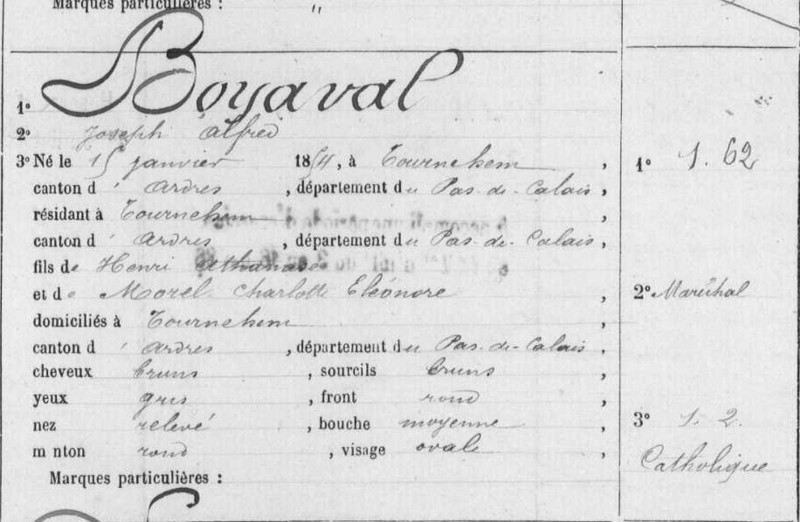 Marques particulières : "
1° Boyaval
2° Joseph Alfred
3° Né le 15 janvier 1854, à Tournehem, 1° 1.62
canton d' Ardres, département du Pas-de-Calais,
résidant à Tournehem
canton d' Ardres, département du Pas-de-Calais,
fils de Henri Athanase
et de Morel Charlotte Eléonore, 2° Maréchal
domiciliés à Tournehem,
canton d' Ardres, département du Pas-de-Calais,
cheveux bruns, sourcils bruns,
yeux gris, front rond,
nez relevé, bouche moyenne, 3° 1. 2.
m nton rond, visage ovale, Catholique
Marques particulières :